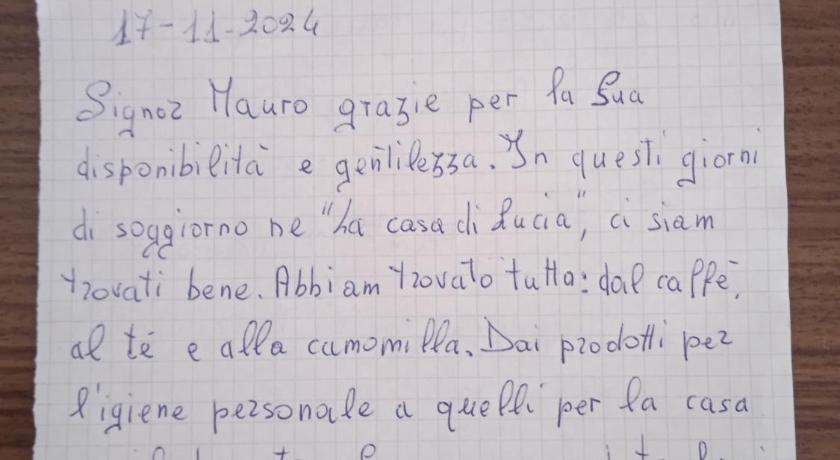 17-11-2024
Signor Mauro grazie per la Sua
disponibilità e gentilezza. In questi giorni
di soggiorno ne "La casa di Lucia", ci siam
trovati bene. Abbiam trovato tutto: dal caffè,
al té e alla camomilla. Dai prodotti per
l'igiene personale a quelli per la casa